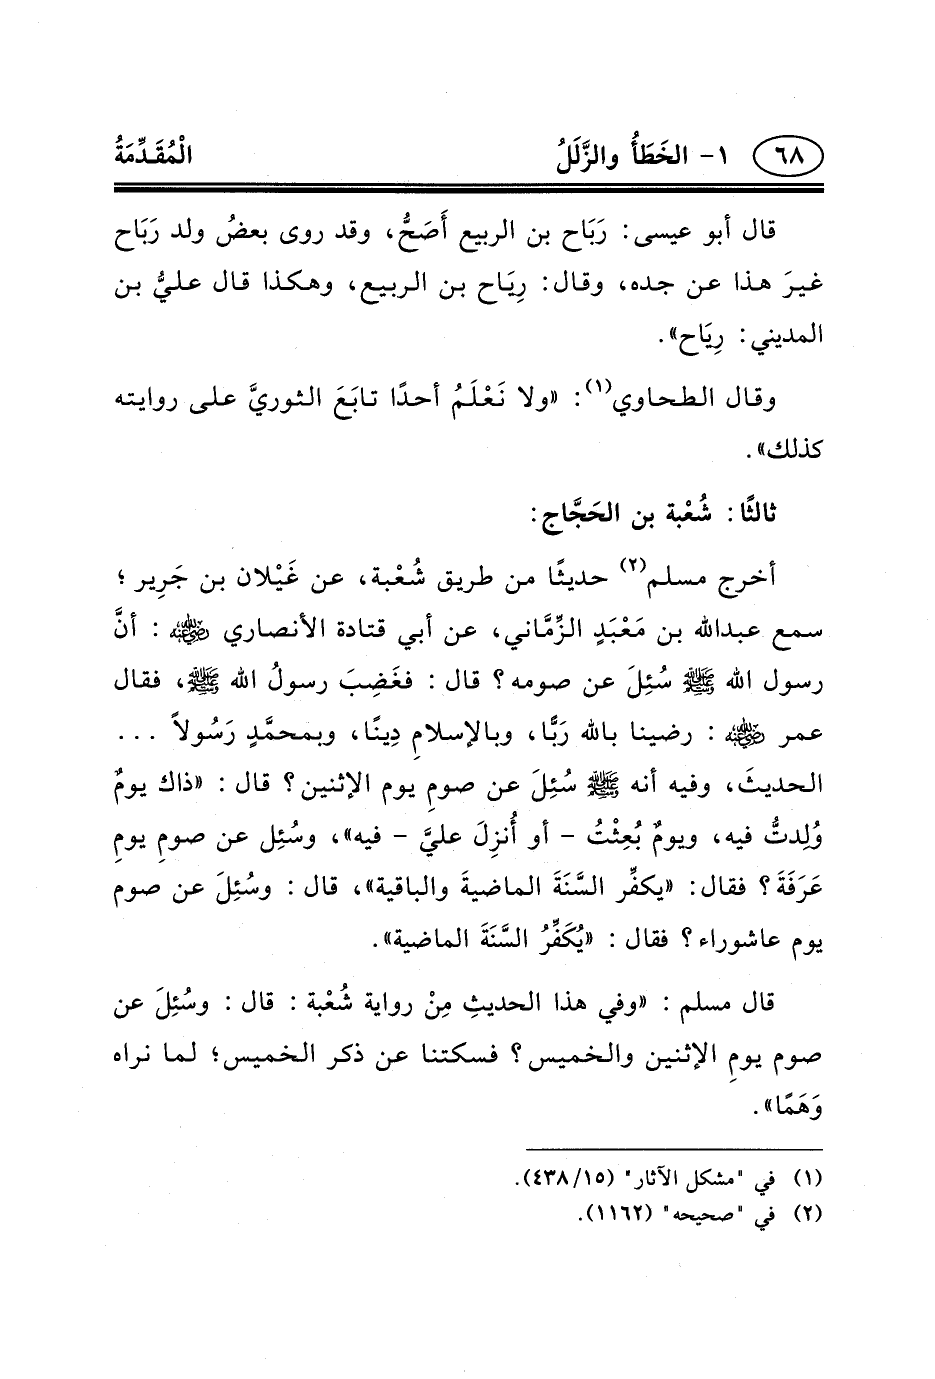 ٦٨ ١- الخَطَأُ والزَّلَلُ المُقَدِّمَةُ
قال أبو عيسى: رَبَاح بن الربيع أَصَحُّ، وقد روى بعضُ ولد رَبَاح
غيرَ هذا عن جده، وقال: رِيَاح بن الربيع، وهكذا قال عليُّ بن
المديني: رِيَاح».
وقال الطحاوي(١): «ولا نَعْلَمُ أحدًا تابَعَ الثوريَّ على روايته
كذلك».
ثالثًا: شُعْبة بن الحَجَّاج:
أخرج مسلم(٢) حديثًا من طريق شُعْبة، عن غَيْلان بن جَرِير؛
سمع عبدالله بن مَعْبَدٍ الزِّمَّاني، عن أبي قتادة الأنصاري رضي الله عنه: أنَّ
رسول الله ﷺ سُئِلَ عن صومه؟ قال: فغَضِبَ رسولُ الله ﷺ، فقال
عمر رضي الله عنه: رضينا بالله رَبًّا، وبالإسلامِ دِينًا، وبمحمَّدٍ رَسُولاً ...
الحديثَ، وفيه أنه ﷺ سُئِلَ عن صومِ يومِ الإثنين؟ قال: «ذاك يومٌ
وُلِدتُّ فيه، ويومٌ بُعِثْتُ - أو أُنزِلَ عليَّ - فيه»، وسُئِل عن صومِ يومِ
عَرَفَةَ؟ فقال: «يكفِّر السَّنَةَ الماضيةَ والباقية»، قال: وسُئِلَ عن صوم
يوم عاشوراء؟ فقال: «يُكَفِّرُ السَّنَةَ الماضية».
قال مسلم: «وفي هذا الحديثِ مِنْ رواية شُعْبة: قال: وسُئِلَ عن
صوم يومِ الإثنين والخميس؟ فسكتنا عن ذكر الخميس؛ لما نراه
وَهَمًا».
(١) في "مشكل الآثار" (٤٣٨/١٥).
(٢) في "صحيحه" (١١٦٢).